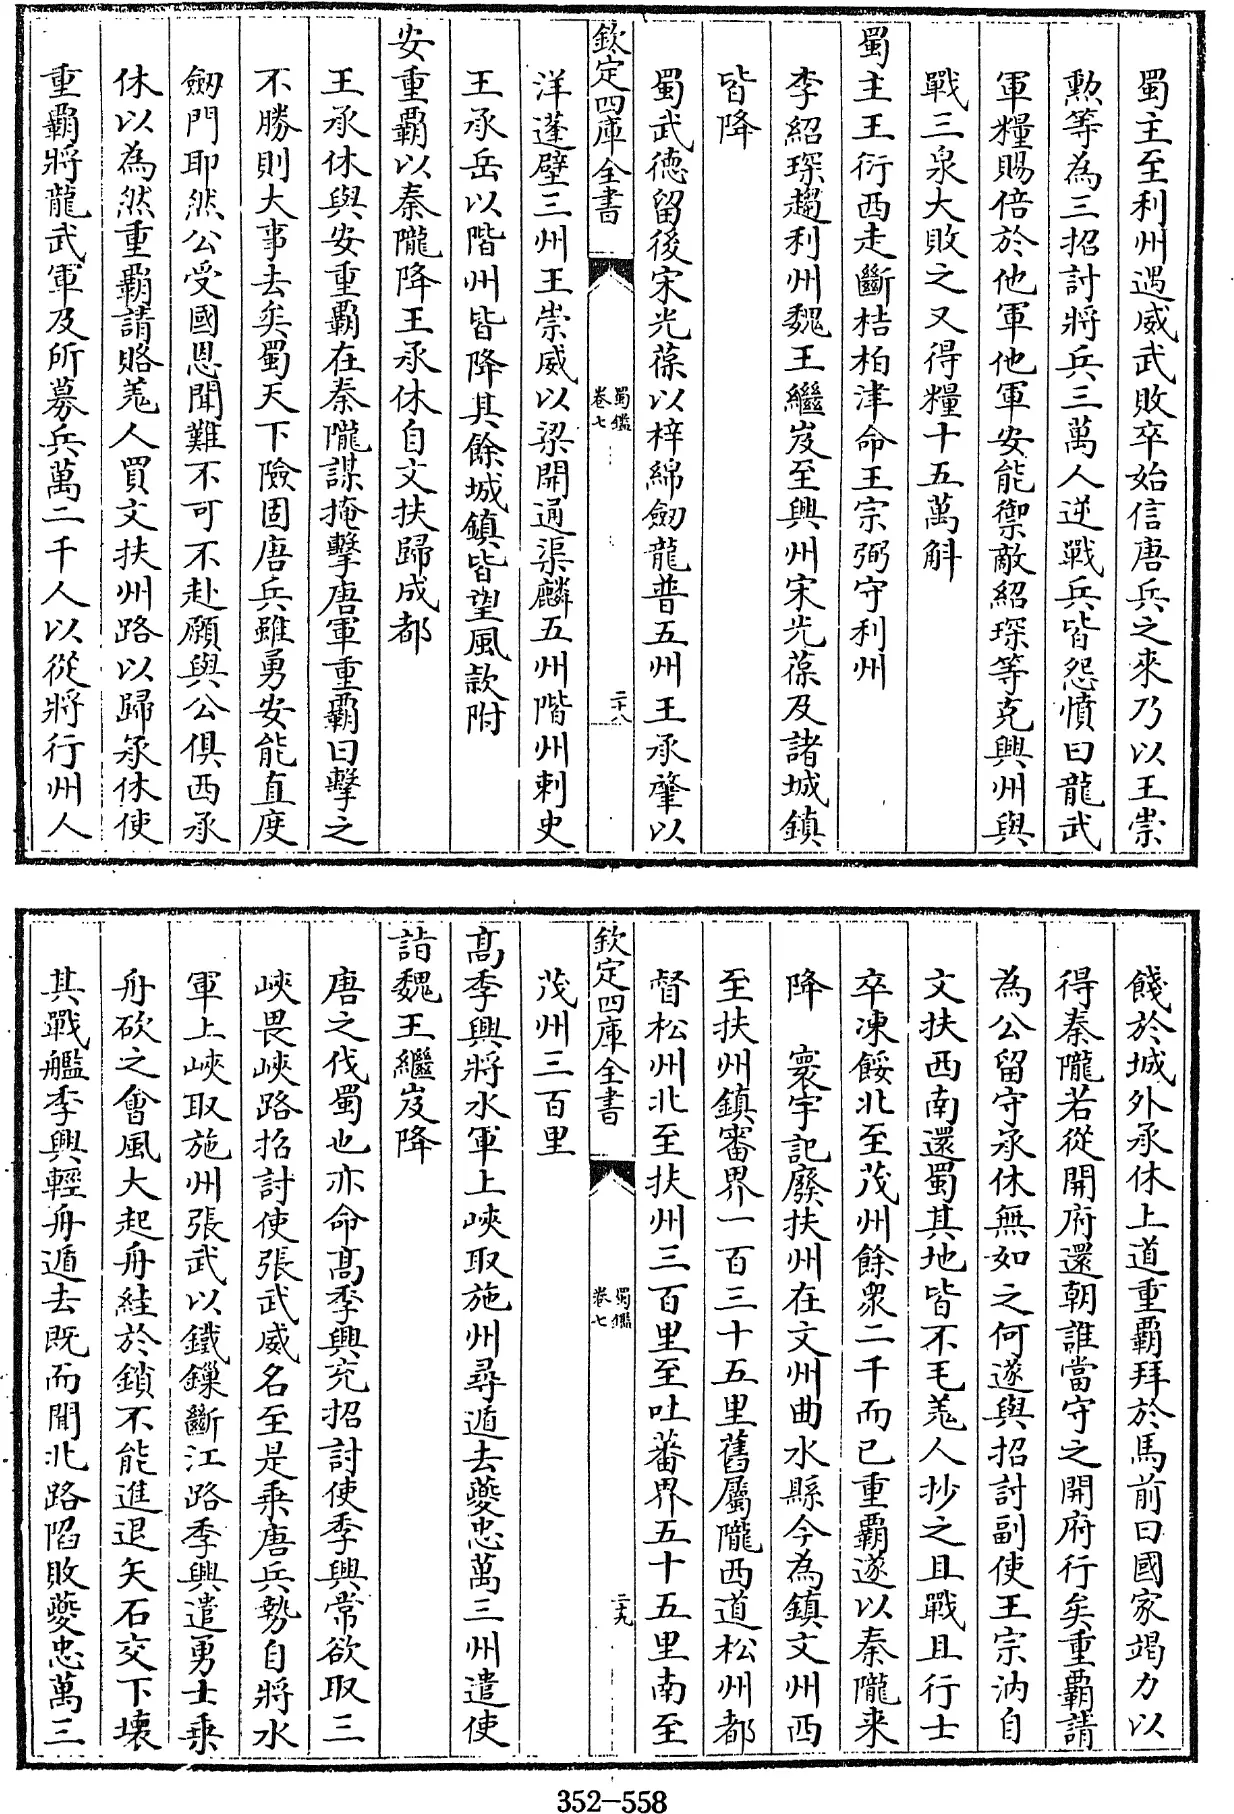 蜀主至利州遇威武敗卒始信唐兵之來乃以王崇
勲等為三招討將兵三萬人逆戰兵皆怨憤曰龍武
軍糧賜倍於他軍他軍安能禦敵紹琛等克興州與
戰三泉大敗之又得糧十五萬斛
蜀主王衍西走斷桔柏津命王宗弼守利州
李紹琛趨利州魏王繼岌至興州宋光葆及諸城鎮
皆降
蜀武德留後宋光葆以梓綿劒龍普五州王承肇以
欽定四庫全書
蜀鑑
卷七
二十八
洋蓬壁三州王崇威以梁開通渠麟五州階州刺史
王承岳以階州皆降其餘城鎮皆望風款附
安重霸以秦隴降王承休自文扶歸成都
王承休與安重霸在秦隴謀掩擊唐軍重霸曰擊之
不勝則大事去矣蜀天下險固唐兵雖勇安能直度
劒門耶然公受國恩聞難不可不赴願與公俱西承
休以為然重霸請賂羌人買文扶州路以歸承休使
重霸將龍武軍及所募兵萬二千人以從將行州人
餞於城外承休上道重霸拜於馬前曰國家竭力以
得秦隴若從開府還朝誰當守之開府行矣重霸請
為公留守承休無如之何遂與招討副使王宗汭自
文扶西南還蜀其地皆不毛羌人抄之且戰且行士
卒凍餒北至茂州餘衆二千而已重霸遂以秦隴来
降 寰宇記廢扶州在文州曲水縣今為鎮文州西
至扶州鎮審界一百三十五里舊屬隴西道松州都
督松州北至扶州三百里至吐蕃界五十五里南至
欽定四庫全書
蜀鑑
卷七
二十九
茂州三百里
髙季興將水軍上峽取施州尋遁去夔忠萬三州遣使
詣魏王繼岌降
唐之伐蜀也亦命髙季興充招討使季興常欲取三
峽畏峽路招討使張武威名至是乗唐兵勢自將水
軍上峽取施州張武以鐵鏁斷江路季興遣勇士乗
舟砍之會風大起舟絓於鎖不能進退矢石交下壊
其戰艦季興輕舟遁去既而聞北路陷敗夔忠萬三
352-558